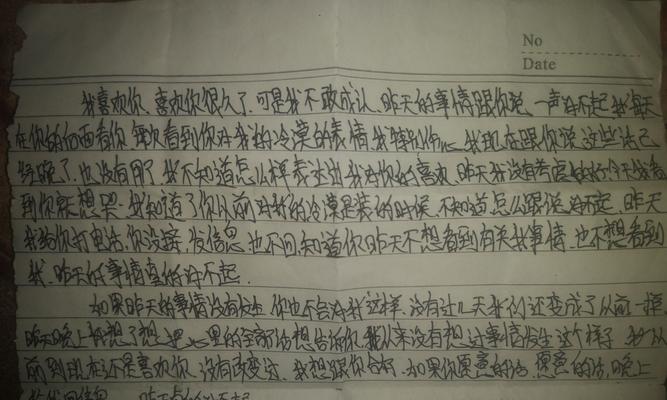 No
Date
我喜欢你、喜欢你很久了、可是我不敢成认、昨天的事情跟你说一声对不起我每天
在你的后面看你每次看到你对我的冷漠的表情我特别伤心我现在跟你说这些话已
经晚了、也没有用了我不知道怎么样表达出我对你的喜欢、昨天我没有考虑好今天我看
到你就想哭、我知道了你从前对我的冷漠是装的时候、不知道怎么跟你说对不起、昨天
我给你打电话、你没接、发信息、也不回知道你昨天不想看到有关我事情、也不想看到
我、昨天的事情真的对不起.
如果昨天的事情没有发生你也不会对我这样、没有过几天我们还变成了从前一样、
昨天晚上我想了想、把心里的全部话想告诉你、我从来没有想过事情发生这个样子、我从
前到现在还是喜欢你、没有改变过、我想跟你合好、如果你愿意的话、愿意的话、晚上
给我回信息、昨天真的对不起